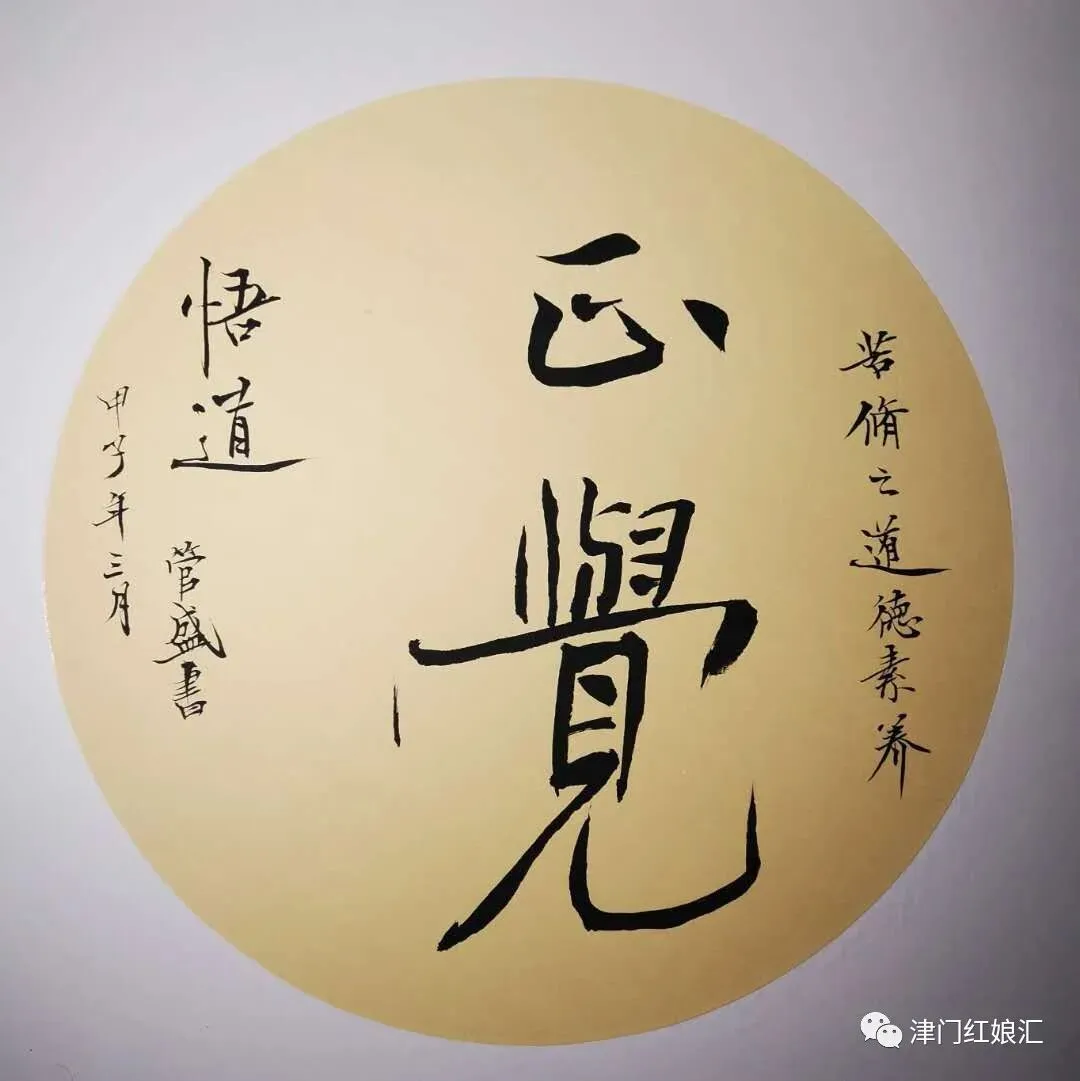 若脩之道德素养
正覺
悟道
管盛書
甲子年三月
津门红娘汇